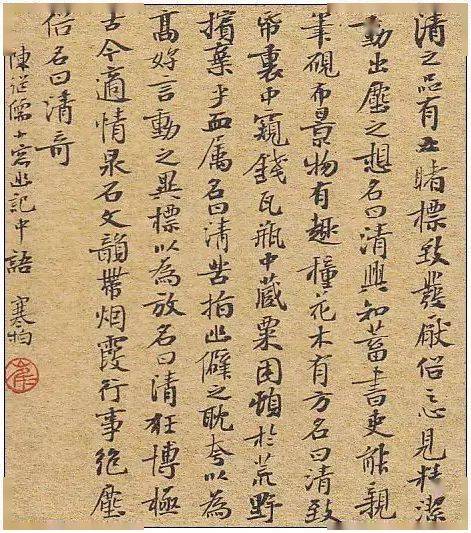 清之品有五睹標致發厭俗之心見精潔
動出塵之想名曰清興知蓄書史能親
筆硯布景物有趣種花木有方名曰清致
帋裹中窺錢瓦瓶中藏粟困頓於荒野
擯棄乎血属名曰清苦指幽僻之耽夸以為
高好言動之異標以為放名曰清狂博極
古今適情泉石文韻帶烟霞行事絕塵
俗名曰清奇
陳继儒小窗幽記中語 寒柏